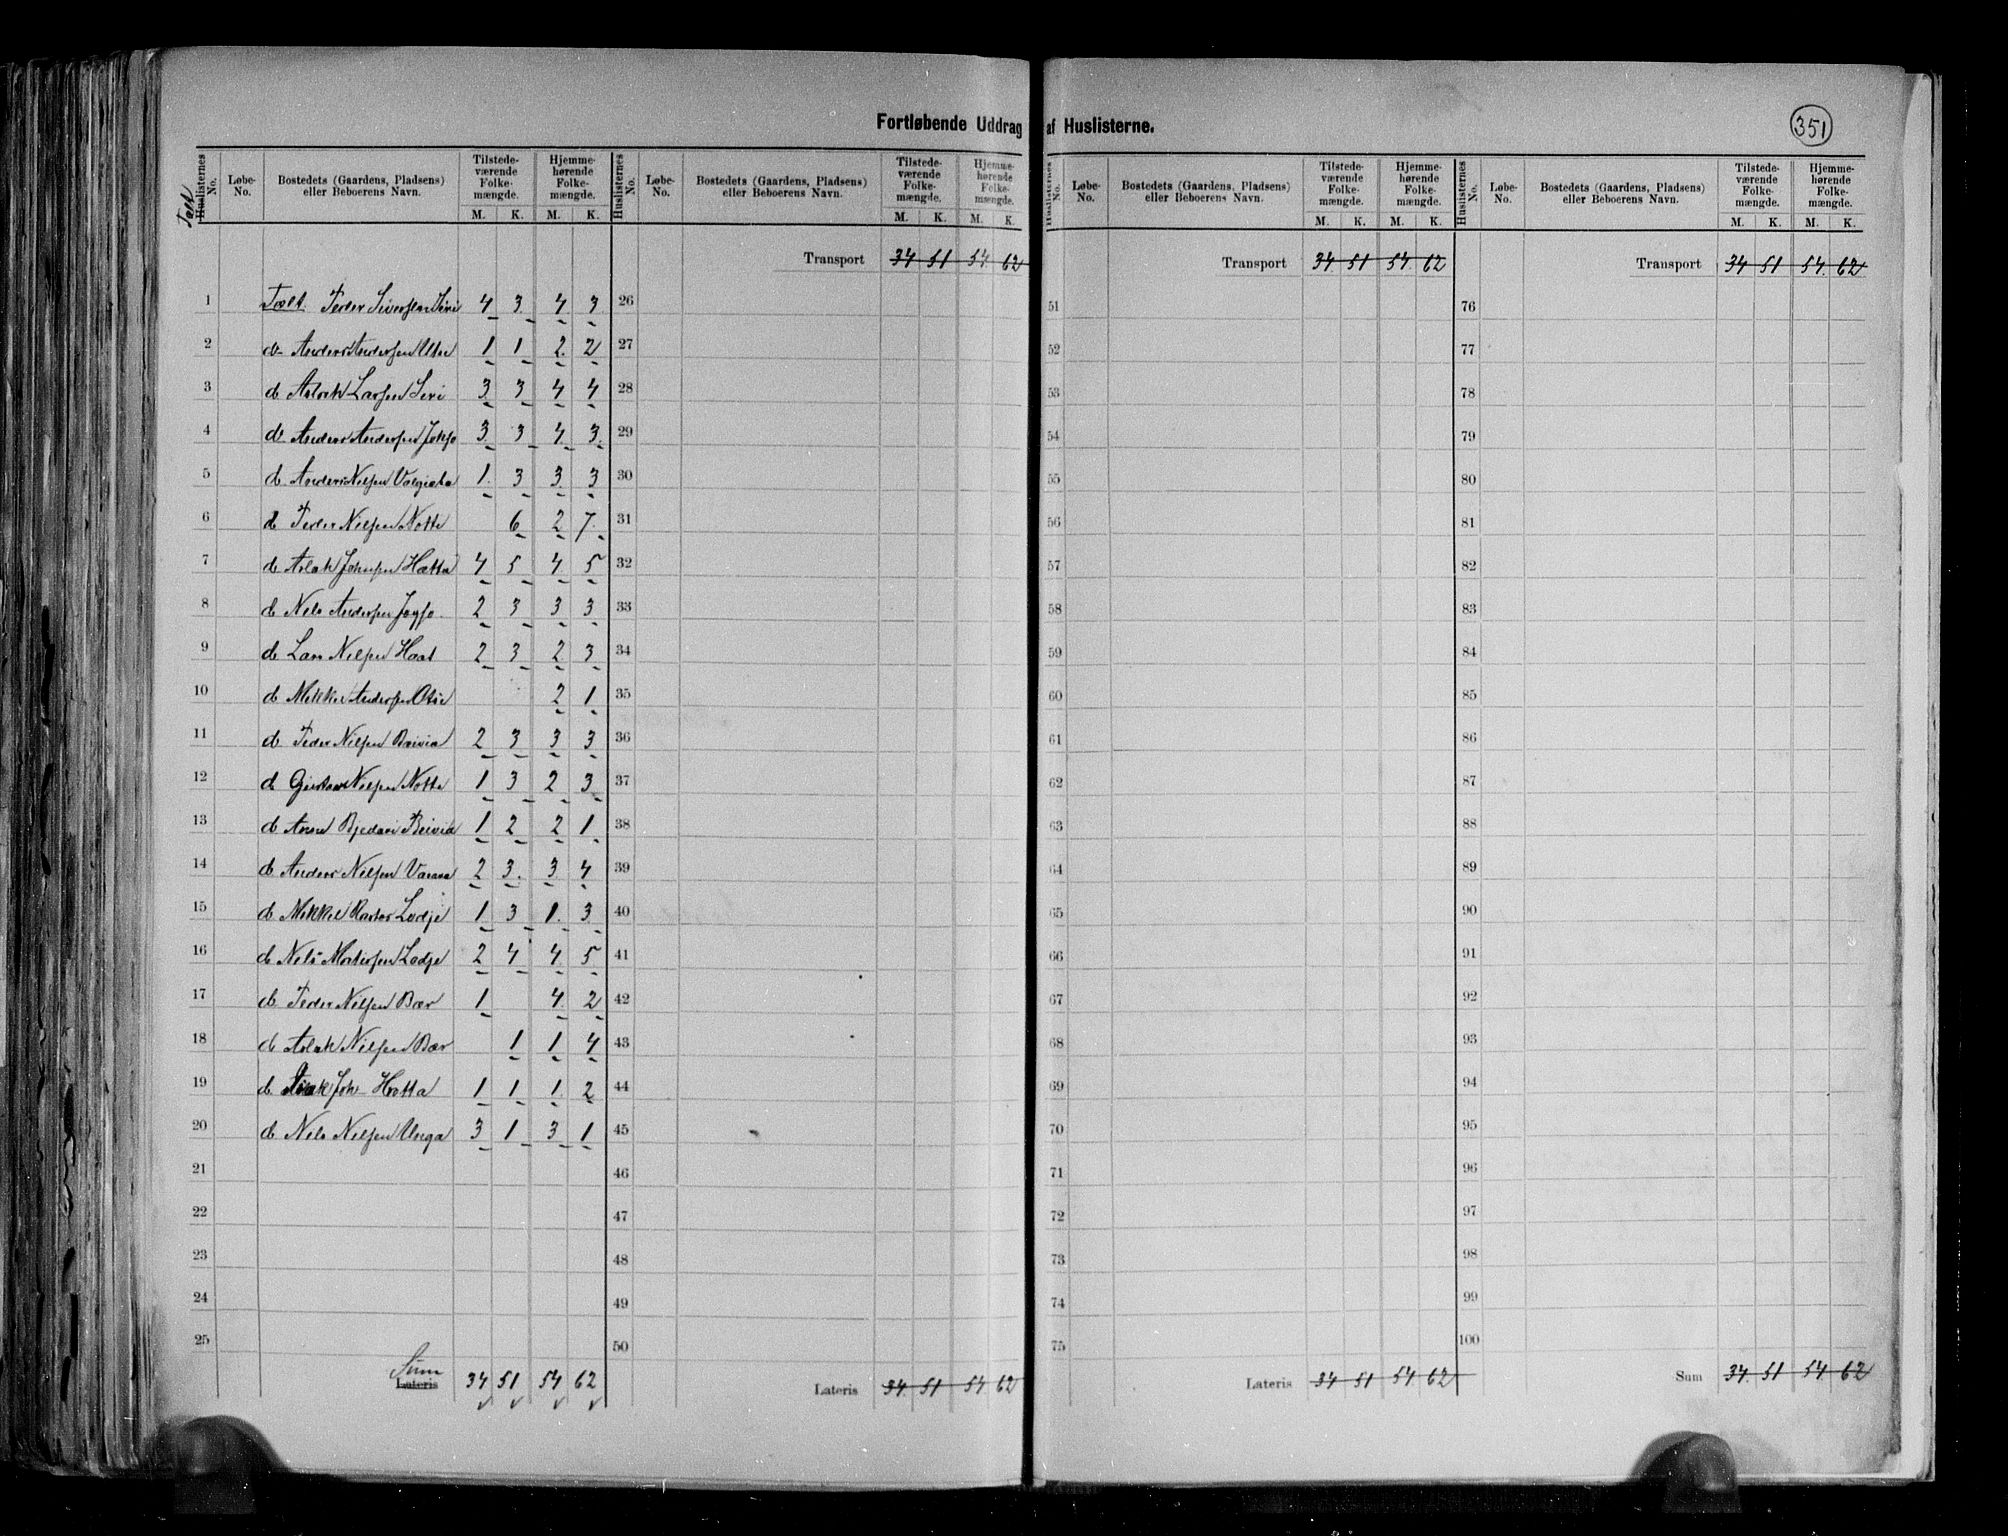 Fortløbende Uddrag af Huslisterne.
351
Talt
Huslisternes No. Løbe-No. Bostedets (Gaardens, Pladsens) eller Beboerens Navn. Tilstede-værende Folke-mængde. M. K. Hjemme-hørende Folke-mængde. M. K.
1 Tælt. Peder Siversen Siri 4 3 4 3
2 do Anders Andersen Utsi 1 1 2 2
3 do Aslak Larsen Siri 3 3 4 4
4 do Anders Andersen Jokso 3 3 4 3
5 do Anders Nilsen 1 3 3 3
6 do Peder Nilsen Notti 6 2 7
7 do Aslak Johnsen Hætta 4 5 4 5
8 do Nils Andersen 2 3 3 3
9 do Lars Nilsen 2 3 2 3
10 do Mikkel Andersen 2 1
11 do Peder Nilsen Baivia 2 3 3 3
12 do Nilsen Notti 1 3 2 3
13 do Bjedari 1 2 2 1
14 do Anders Nilsen 2 3 3 4
15 do Mikkel 1 3 1 3
16 do Nils 2 4 4 5
17 do Peder Nilsen Bær 1 4 2
18 do Aslak Nilsen Bær 1 1 4
19 do Joh Hotta 1 1 1 2
20 do Nils Nilsen Unga 3 1 3 1
21
22
23
24
25
Sum
Lateris 34 51 54 62
Huslisternes No. Løbe-No. Bostedets (Gaardens, Pladsens) eller Beboerens Navn. Tilstede-værende Folke-mængde. M. K. Hjemme-hørende Folke-mængde. M. K.
Transport 34 51 54 62
26
27
28
29
30
31
32
33
34
35
36
37
38
39
40
41
42
43
44
45
46
47
48
49
50
Lateris 34 51 54 62
Huslisternes No. Løbe-No. Bostedets (Gaardens, Pladsens) eller Beboerens Navn. Tilstede-værende Folke-mængde. M. K. Hjemme-hørende Folke-mængde. M. K.
Transport 34 51 54 62
51
52
53
54
55
56
57
58
59
60
61
62
63
64
65
66
67
68
69
70
71
72
73
74
75
Lateris 34 51 54 62
Huslisternes No. Løbe-No. Bostedets (Gaardens, Pladsens) eller Beboerens Navn. Tilstede-værende Folke-mængde. M. K. Hjemme-hørende Folke-mængde. M. K.
Transport 34 51 54 62
76
77
78
79
80
81
82
83
84
85
86
87
88
89
90
91
92
93
94
95
96
97
98
99
100
Sum 34 51 54 62